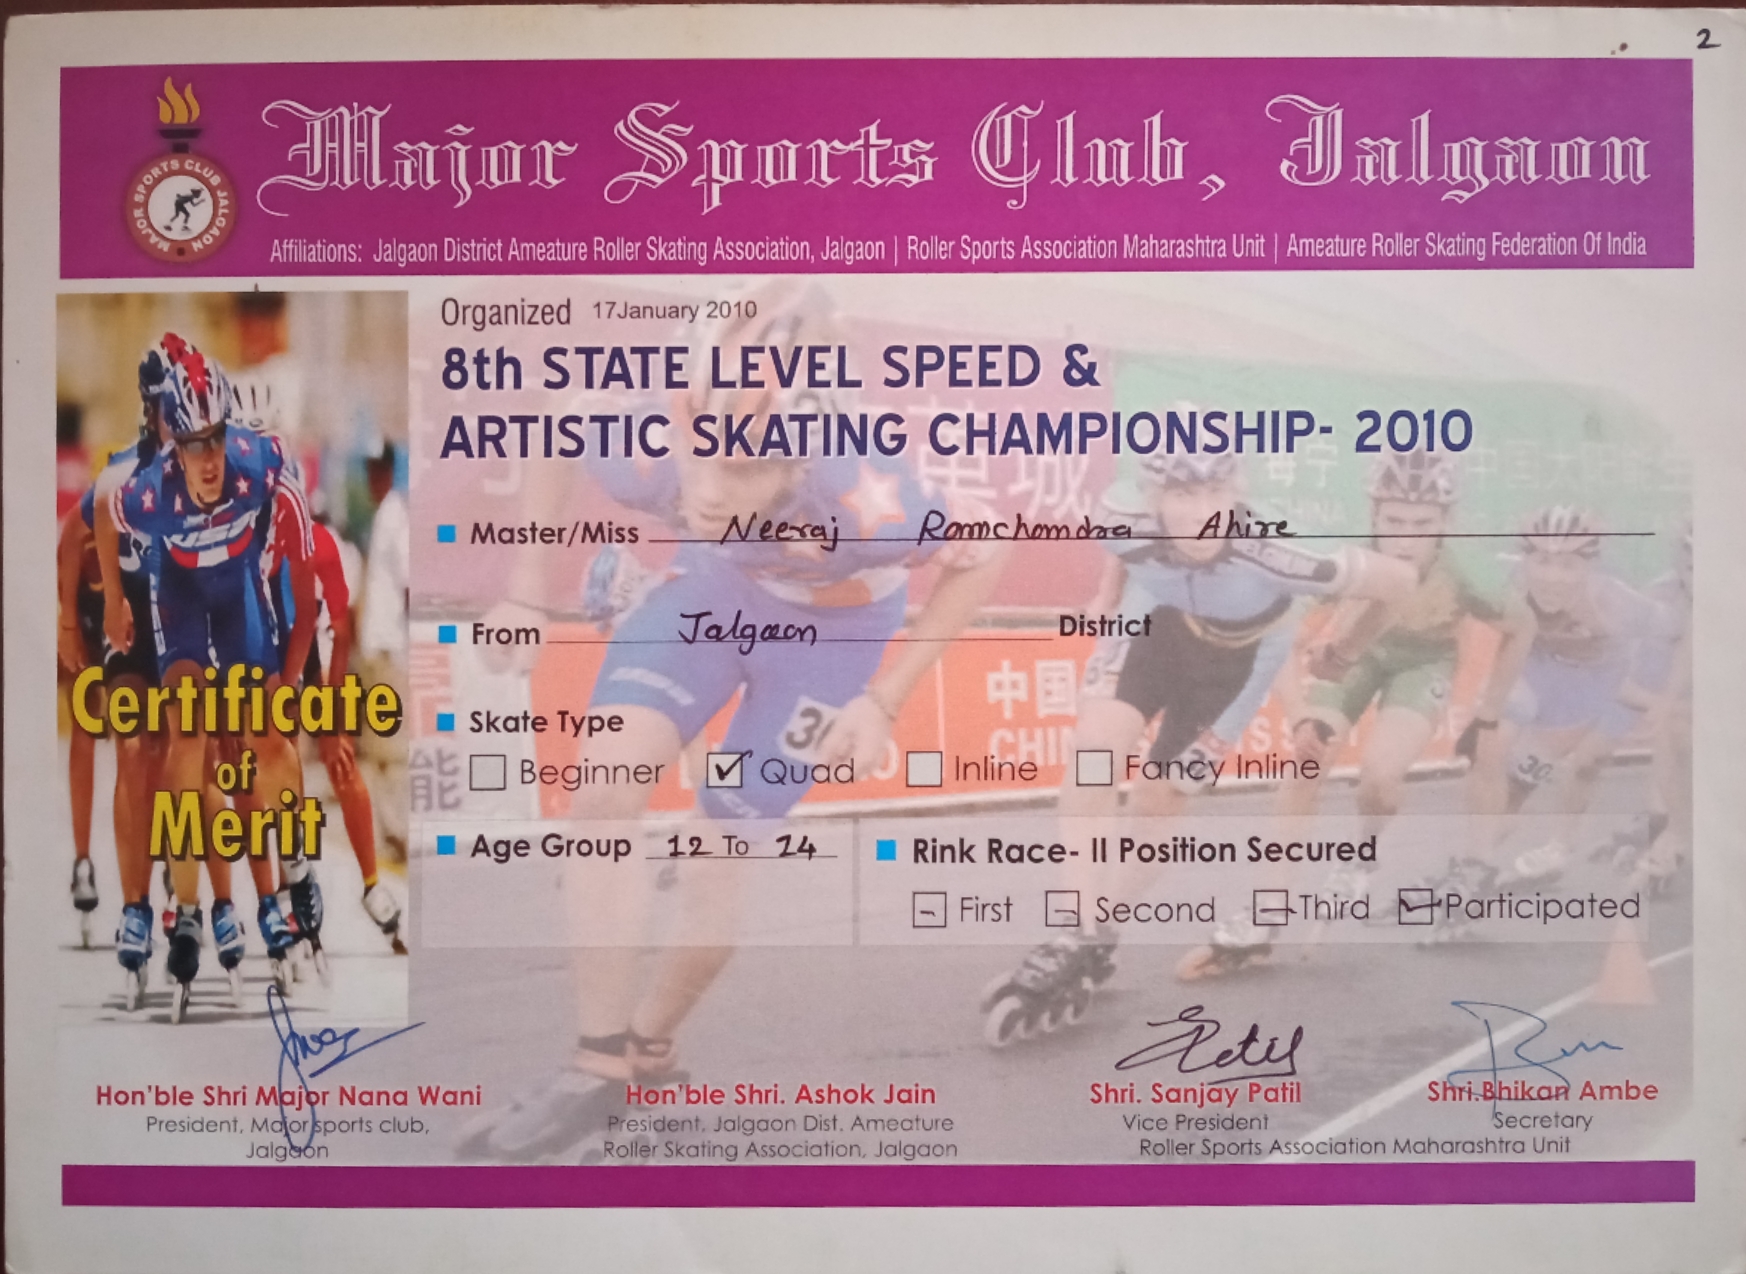 2
Major Sports Club, Jalgaon
MAJOR SPORTS CLUB JALGAON
Affiliations: Jalgaon District Ameature Roller Skating Association, Jalgaon | Roller Sports Association Maharashtra Unit | Ameature Roller Skating Federation Of India
Organized 17January 2010
8th STATE LEVEL SPEED &
ARTISTIC SKATING CHAMPIONSHIP- 2010
Master/Miss Neeraj Ramchandra Ahire
From Jalgaon District
Certificate
of
Merit
Skate Type
Beginner Quad Inline Fancy Inline
中国
CHINA
Age Group 12 To 14
Rink Race- II Position Secured
First Second Third Participated
Hon'ble Shri Major Nana Wani
President, Major sports club,
Jalgaon
Hon'ble Shri. Ashok Jain
President, Jalgaon Dist. Ameature
Roller Skating Association, Jalgaon
Shri. Sanjay Patil
Vice President
Shri.Bhikan Ambe
Secretary
Roller Sports Association Maharashtra Unit